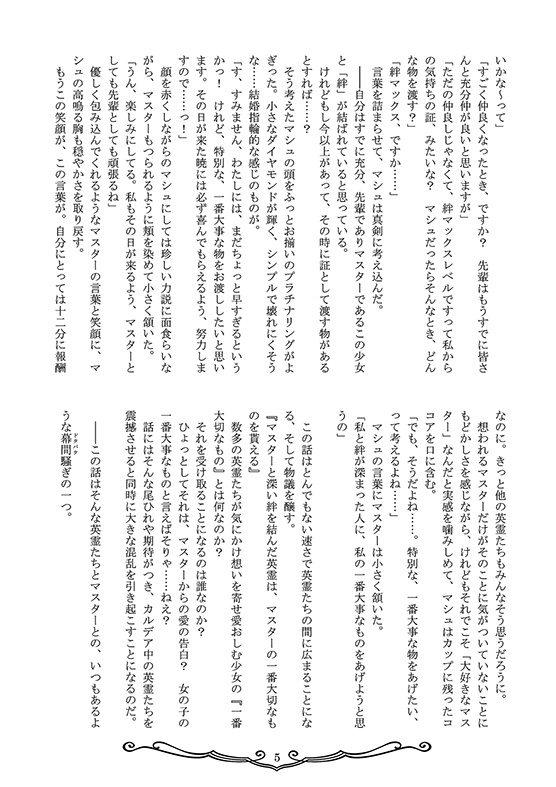 いかな～って」
「すごく仲良くなったとき、ですか？　先輩はもうすでに皆さ
んと充分仲が良いと思いますが」
「ただの仲良しじゃなくて、絆マックスレベルですって私から
の気持ちの証、みたいな？　マシュだったらそんなとき、どん
な物を渡す？」
「絆マックス、ですか……」
　言葉を詰まらせて、マシュは真剣に考え込んだ。
　――自分はすでに充分、先輩でありマスターであるこの少女
と「絆」が結ばれていると思っている。
　けれどもし今以上があって、その時に証として渡す物がある
とすれば……？
　そう考えたマシュの頭をふっとお揃いのプラチナリングがよ
ぎった。小さなダイヤモンドが輝く、シンプルで壊れにくそう
な……結婚指輪的な感じのものが。
「す、すみません、わたしには、まだちょっと早すぎるという
かっ！　けれど、特別な、一番大事な物をお渡ししたいと思い
ます。その日が来た暁には必ず喜んでもらえるよう、努力しま
すので……っ！」
　顔を赤くしながらのマシュにしては珍しい力説に面食らいな
がら、マスターもつられるように頬を染めて小さく頷いた。
「うん、楽しみにしてる。私もその日が来るよう、マスターと
しても先輩としても頑張るね」
　優しく包み込んでくれるようなマスターの言葉と笑顔に、マ
シュの高鳴る胸も穏やかさを取り戻す。
　もうこの笑顔が、この言葉が。自分にとっては十二分に報酬
なのに。きっと他の英霊たちもみんなそう思うだろうに。
　想われるマスターだけがそのことに気がついていないことに
もどかしさを感じながら、けれどもそれでこそ「大好きなマス
ター」なんだと実感を噛みしめて、マシュはカップに残ったコ
コアを口に含む。
「でも、そうだよね……。特別な、一番大事な物をあげたい、
って考えるよね……」
　マシュの言葉にマスターは小さく頷いた。
「私と絆が深まった人に、私の一番大事なものをあげようと思
うの」
　この話はとんでもない速さで英霊たちの間に広まることにな
る、そして物議を醸す。
『マスターと深い絆を結んだ英霊は、マスターの一番大切なも
のを貰える』
　数多の英霊たちが気にかけ想いを寄せ愛おしむ少女の『一番
大切なもの』とは何なのか？
　それを受け取ることになるのは誰なのか？
　ひょっとしてそれは、マスターからの愛の告白？　女の子の
一番大事なものと言えばそりゃ……ねえ？
　話にはそんな尾ひれや期待がつき、カルデア中の英霊たちを
震撼させると同時に大きな混乱を引き起こすことになるのだ。
　――この話はそんな英霊たちとマスターとの、いつもあるよ
うな幕間騒ぎの一つ。
ドタバタ
5